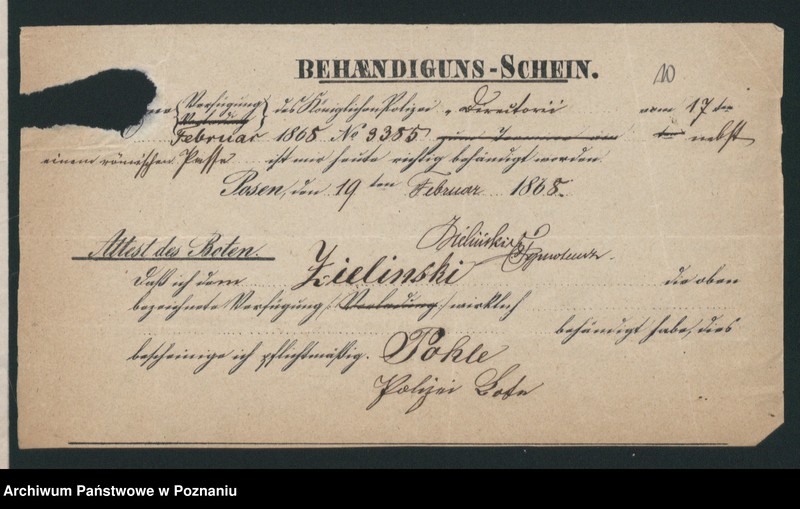 BEHÆNDIGUNS-SCHEIN.
10
Verfügung des Königlichen Polizei-Directorii vom 17ten
Februar 1868 No 3385 nebst
einem römischen Passe ist mir heute richtig behändigt worden.
Posen, den 19ten Februar 1868.
Zieliński
Attest des Boten.
Daß ich dem Zielinski die oben
bezeichnete Verfügung /: Vorladung :/ wirklich
behändigt habe, dies
bescheinige ich pflichtmäßig. Pohle
Polizei Bote
Archiwum Państwowe w Poznaniu